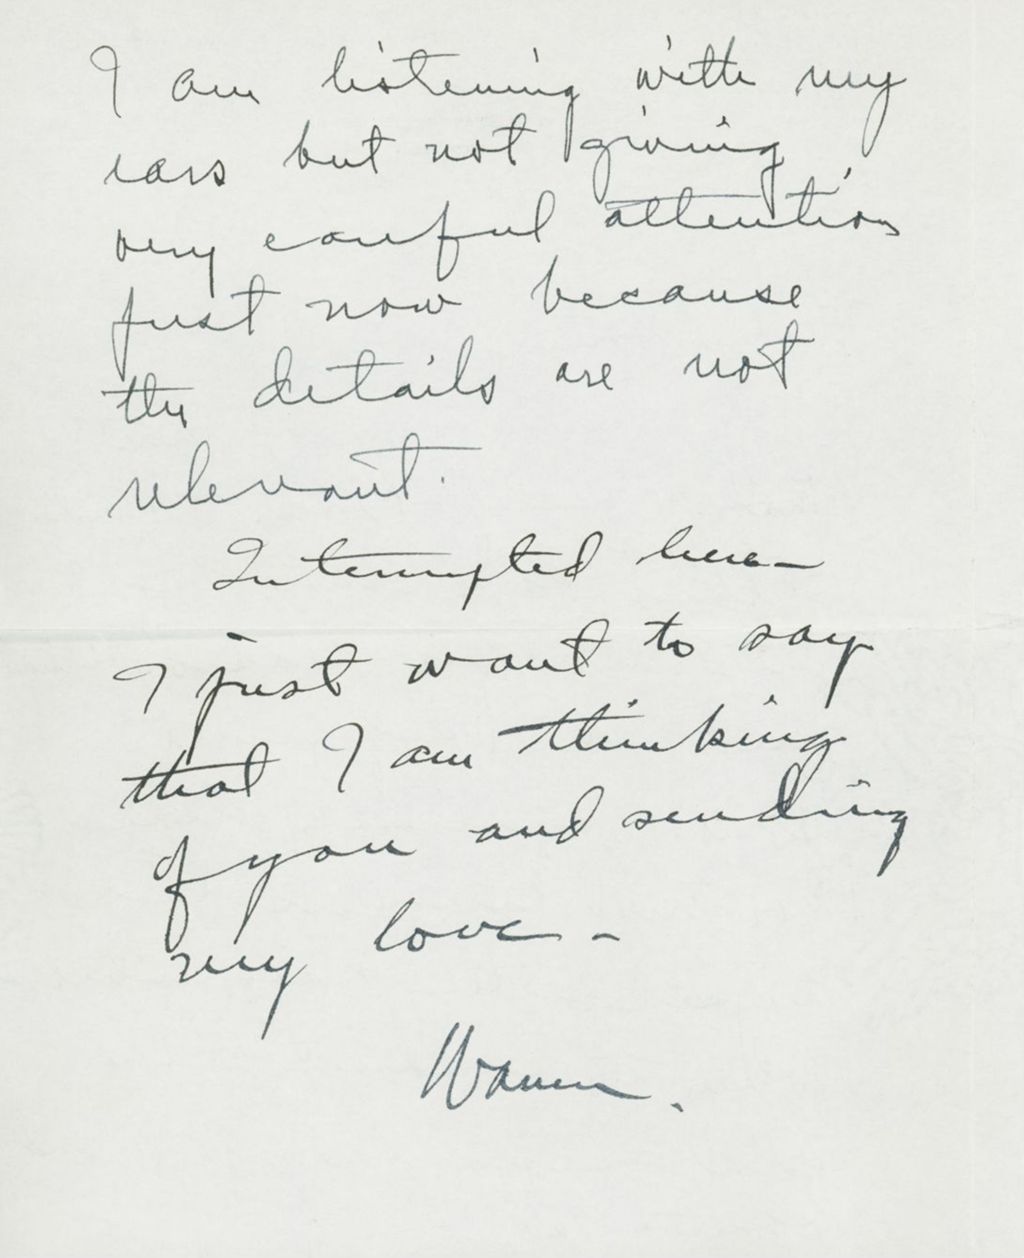 I am listening with my
ears but not giving
very careful attention
just now because
the details are not
relevant.
Interrupted here –
I just want to say
that I am thinking
of you and sending
my love –
Warren.